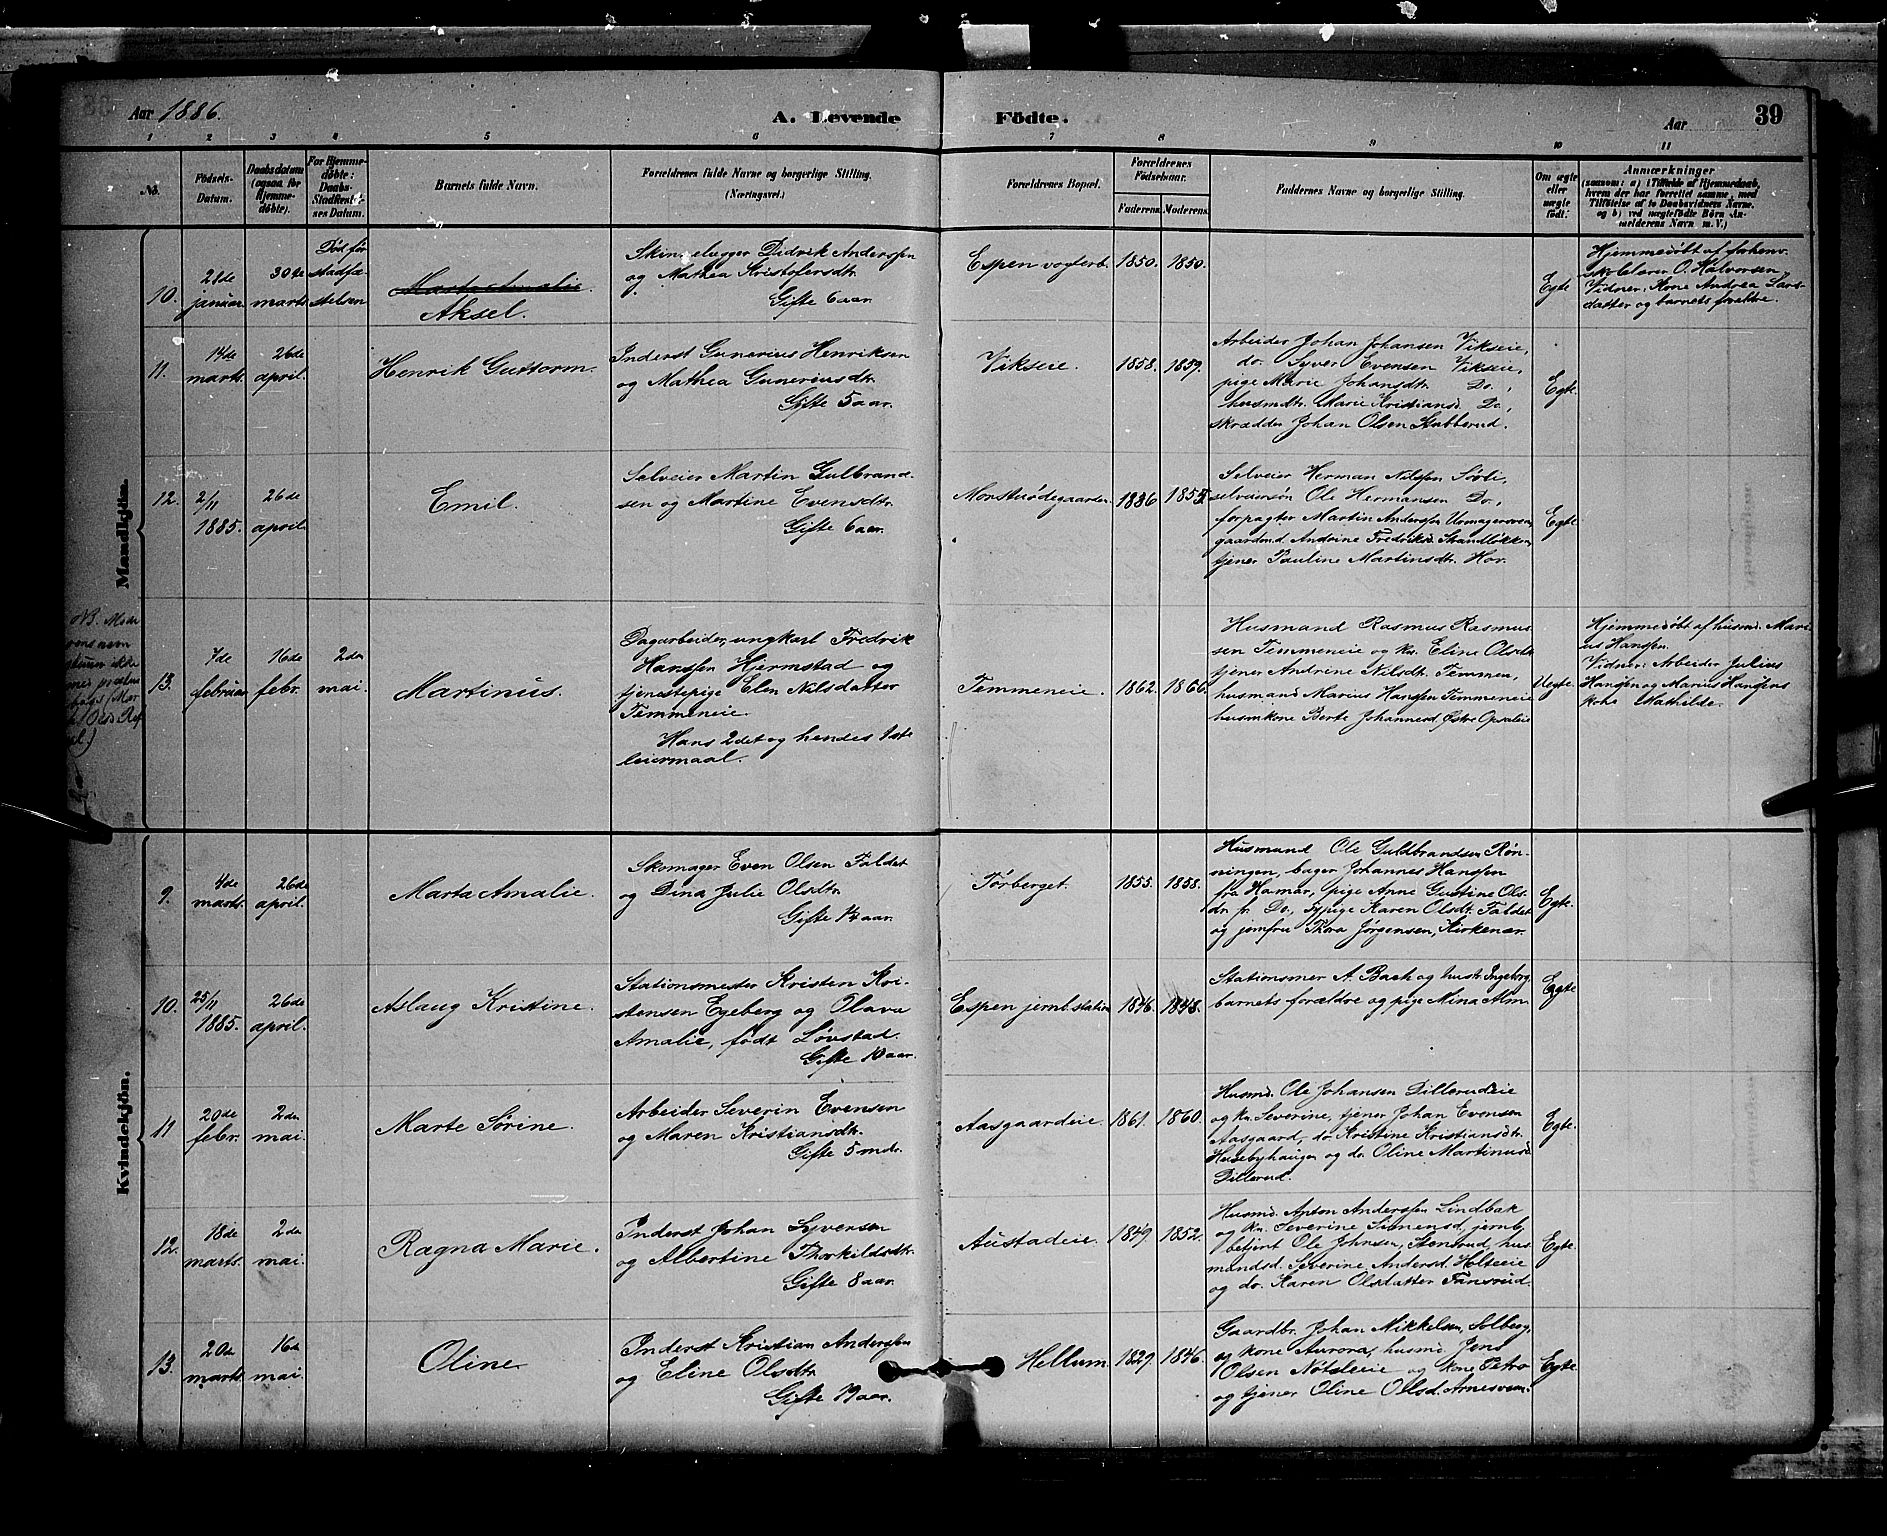 Aar 1886.
A. Levende Födte.
Aar 39
1 2 3 4 5 6 7 8 9 10 11
No.
Födsels-
Datum.
Daabsdatum
(ogsaa for
Hjemme-
döbte).
For Hjemme-
döbte:
Daabs-
Stadfæstel-
ses Datum.
Barnets fulde Navn.
Forældrenes fulde Navne og borgerlige Stilling.
(Næringsvei.)
Forældrenes Bopæl.
Forældrenes
Födselsaar.
Faderens. Moderens.
Faddernes Navne og borgerlige Stilling.
Om ægte
eller
uægte
födt.
Anmærkninger
(saasom: a) i Tilfælde af Hjemmedaab,
hvem der har forrettet samme, med
Tilföielse af to Daabsvidners Navne,
og b) ved uægtefödte Börn An-
melderens Navn m. V.)
Mandkjön.
10.
28de
januar.
30te
marts
Död før
stadfæ-
stelsen
Marta Amalie
Aksel.
Didrik Anderssen
og Mathea Kristofersdtr.
Gifte 6 aar.
Espen vogterb.
1850. 1850.
Egte
Hjemmedøbt af forhenv.
skolelærer O. Halvorsen
Vidner: Kone Andrea Lars-
datter og barnets forældre.
11.
14de
marts.
26de
april.
Henrik Guttorm.
Inderst Gunerius Henriksen
og Mathea Guneriusdtr.
Gifte 5 aar.
Vikseie.
1858. 1859.
Arbeider Johan Johansen Vikseie,
do. Syver Evensen Vikseie,
pige Marie Johansdtr. Do.,
husmdtr. Marie Kristiansd. Do,
skrædder Johan Olsen Stubberud.
Egte.
12.
2/11
1885.
26de
april.
Emil.
Selveier Martin Gulbrand-
sen og Martine Evensdtr.
Gifte 6 aar.
1836
Selveier Herman Nilssen Sørli,
selveiersøn Ole Hermansen Do,
forpagter Martin Anderssen
gaardmd. Andrine Fredriksd.
tjener Pauline Martinsdtr. Hor.
Egte
13.
7de
februar
16de
febr.
2den
mai.
Martinus.
Dagarbeider, ungkarl Fredrik
Hanssen Hjermstad og
tjenestepige Elen Nilsdatter
Temmeneie.
Hans 2det og hendes 1ste
leiermaal.
Temmeneie.
1862. 1866.
Husmand Rasmus Rasmus-
sen Temmeneie og kn. Eline Olsdtr.
tjener Andrine Nilsdt. Temmen,
husmand Marius Hanssen Temmeneie
husmkone Berte Johannesd. Østre Opsaleie
Uegte.
Hjemmedøbt af husmd. Mari-
us Hanssen.
Vidner: Arbeider Julius
Hanssen og Marius Hanssens
kone Mathilde.
Kvindekjön.
9.
4de
marts.
26de
april.
Marta Amalie.
Skomager Even Olsen Faldet
og Dina Julie Olsdtr.
Gifte 1½ aar.
Tørberget.
1855. 1858.
Husmand Ole Guldbrandsen Røn-
ningen, bager Johannes Hanssen
fra Hamar, pige Anne Gustine Ols-
dr. fr. Do., sypige Karen Olsdt. Faldet
og jomfru Thora Jørgensen, Kirkenær.
Egte.
10.
25/11
1885.
26de
april.
Aslaug Kristine.
Stationsmester Kristen Kri-
stensen Egeberg og Olava
Amalie, født Løvstad.
Gifte 10 aar.
Espen jernb.station
1846. 1848.
Stationsmer A. Bach og hustr. Ingeborg,
barnets forældre og pige Mina Alm.
Egte
11
20de
febr.
2den
mai.
Marte Sørine.
Arbeider Severin Evensen
og Maren Kristiansdtr.
Gifte 5 mdr.
Aasgaardeie.
1861. 1860.
Husmd. Ole Johansen Dillerudeie
og kn. Severine, tjener Johan Evensen
Aasgaard, do Kristine Kristiansdtr.
Husebyhaugen og do. Oline Martinusd.
Dillerud.
Egte.
12.
18de
marts.
2den
mai.
Ragna Marie.
Inderst Johan Syversen
og Albertine Thorkildsdtr.
Gifte 8 aar.
Austadeie.
1849. 1852.
Husmd. Anton Anderssen Lindbak
og kn. Severine Simensd., jernb.
betjent Ole Johnsen, Stensrud, hus-
mandsd. Severine Andersd. Holteeie
og do. Karen Olsdatter Fansrud.
Egte.
13.
20de
marts
16de
mai.
Oline.
Inderst Kristian Anderssen
og Eline Olsdtr.
Gifte 19 aar.
Hellum
1829. 1846.
Gaardbr. Johan Mikkelsen, Solberg,
og kone Aurora, husmd. Jens
Olsen og kone Petra
og tjener Oline Olsd. Arnesveen.
Egte.